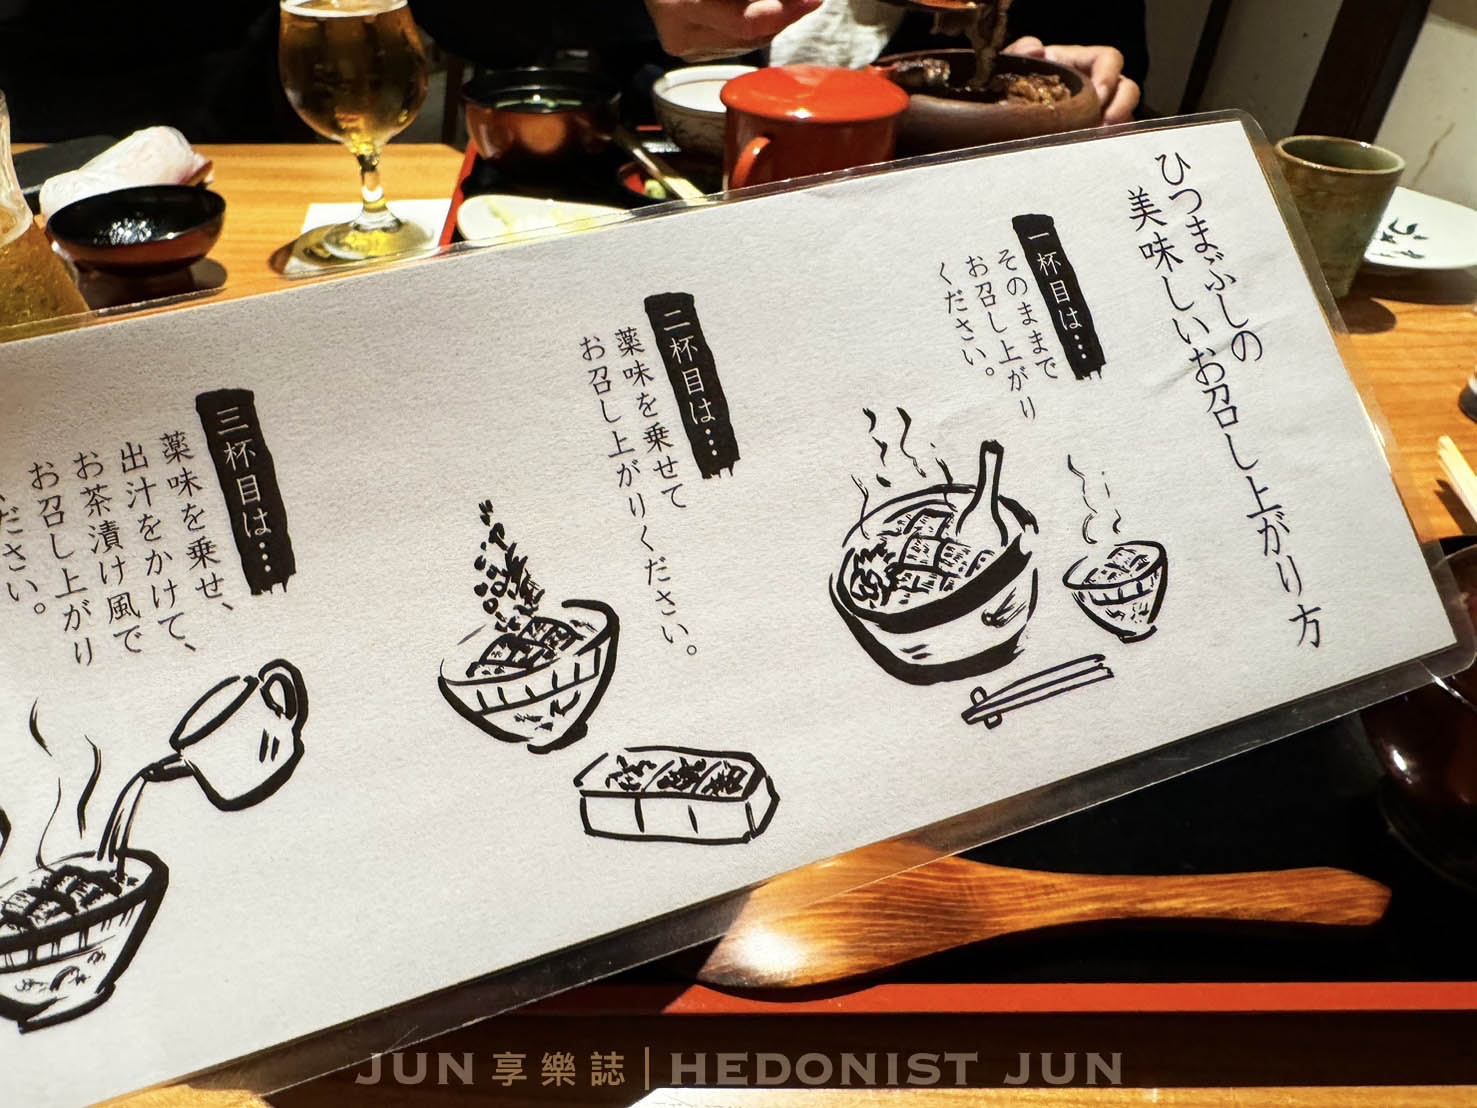 ひつまぶしの
美味しいお召し上がり方
一杯目は…
そのままで
お召し上がり
ください。
二杯目は…
薬味を乗せて
お召し上がりください。
三杯目は…
薬味を乗せ、
出汁をかけて、
お茶漬け風で
お召し上がり
ださい。
JUN 享樂誌 | HEDONIST JUN